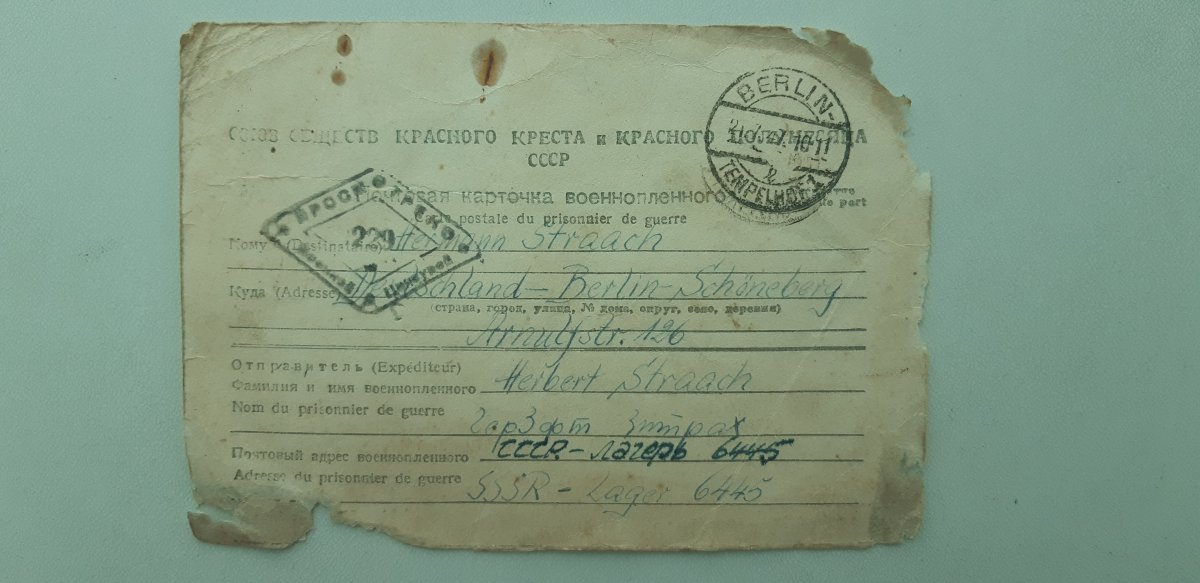 СОЮЗ ОБЩЕСТВ КРАСНОГО КРЕСТА и КРАСНОГО ПОЛУМЕСЯЦА
СССР
BERLIN-
10-11
TEMPELHOF 1
Почтовая карточка военнопленного
Carte postale du prisonnier de guerre
de port
229
Кому (Destinataire) Hermann Straach
Куда (Adresse) Deutschland – Berlin – Schöneberg
(страна, город, улица, № дома, округ, село, деревня)
Arnulfstr. 126
Отправитель (Expéditeur)
Фамилия и имя военнопленного Herbert Straach
Nom du prisonnier de guerre
Почтовый адрес военнопленного СССР – Лагерь 6445
Adresse du prisonnier de guerre SSSR – Lager 6445